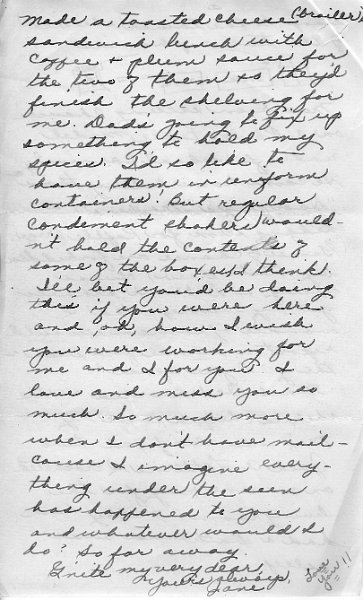 Made a toasted cheese (broiler)
sandwich lunch with
coffee + plum sauce for
the two of them so they'd
finish the shelving for
me. Dad's going to fix up
something to hold my
spices. I'd so like to
have them in uniform
containers. But regular
condement shakers would-
n't hold the contents of
some of the boxes I'd think.
I'll bet you'd be doing
this if you were here
and, oh, how I wish
you were working for
me and I for you. I
love and miss you so
much. So much more
when I don't have mail-
cause I imagine every-
thing under the sun
has happened to you
and whatever would I
do? So far away.
G'nite my very dear,
Yours always,
Jane
Love
you !!